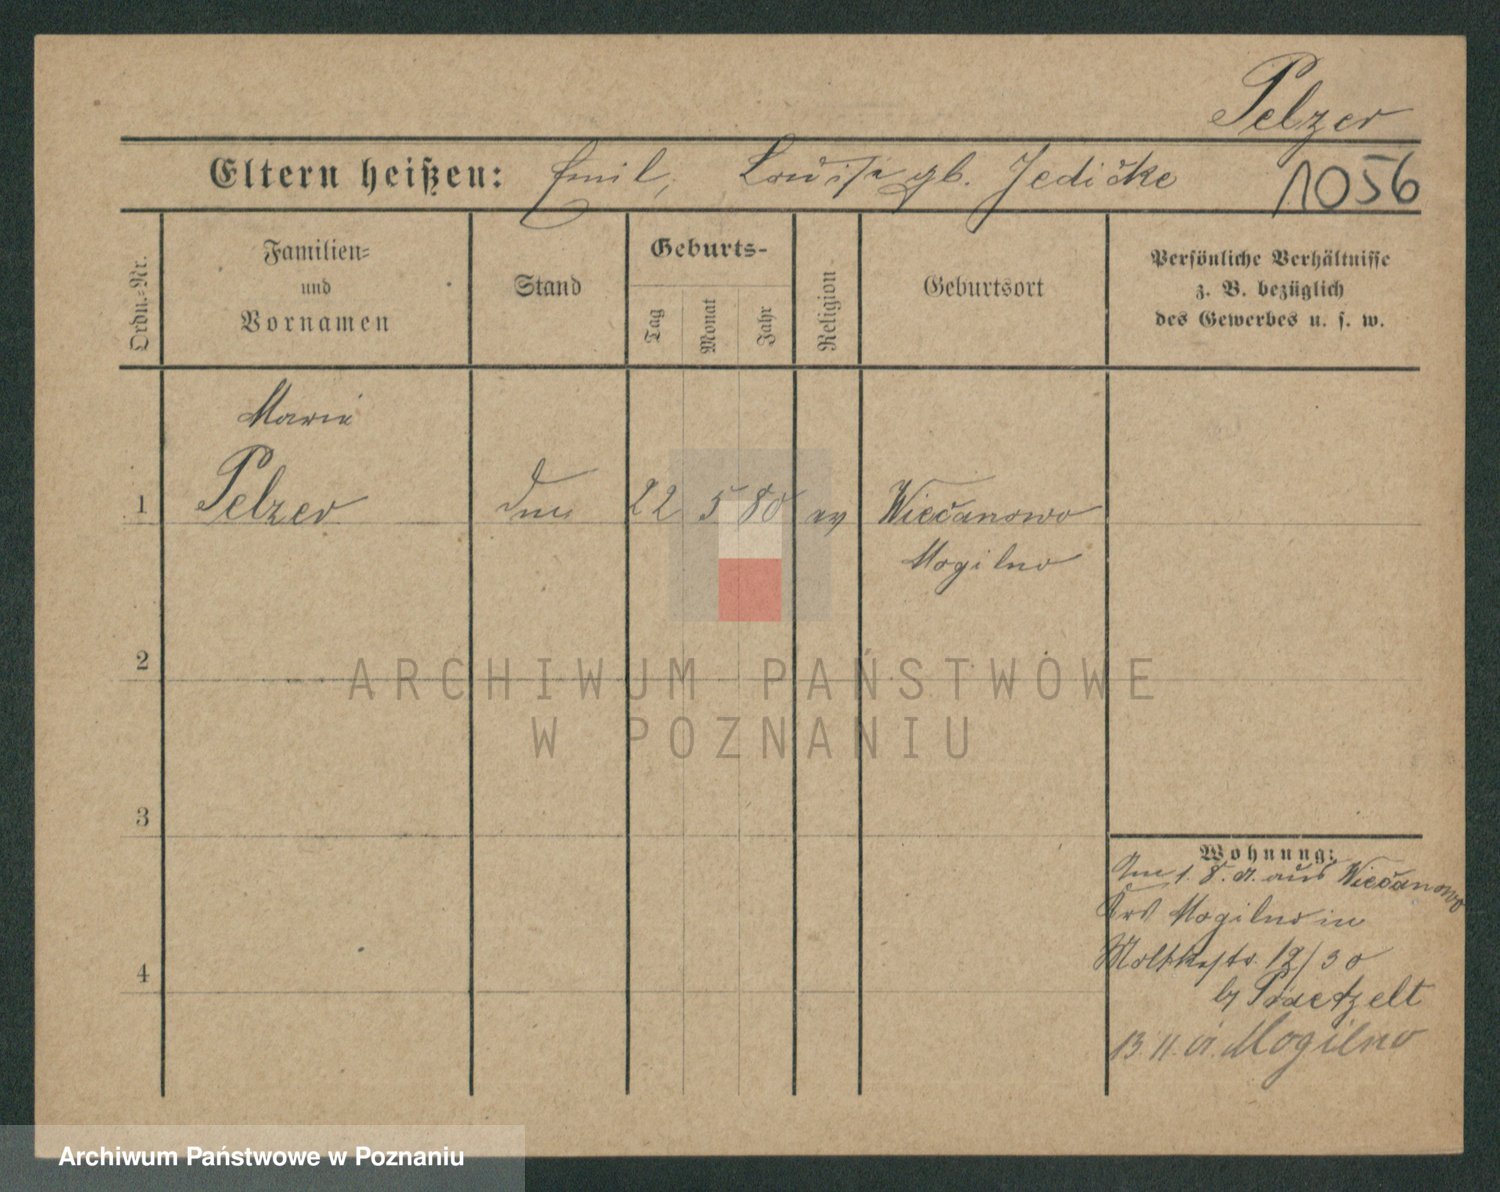 Pelzer
Eltern heißen: Emil, Louise gb. Jedicke 1056
Ordn.-Nr.
Familien-
und
Vornamen
Stand
Geburts-
Tag
Monat
Jahr
Religion
Geburtsort
Persönliche Verhältnisse
z. B. bezüglich
des Gewerbes u. s. w.
Marie
1 Pelzer 22 5 80 ev Wiecanowo
Mogilno
2
3
4
ARCHIWUM PAŃSTWOWE
W POZNANIU
Wohnung:
Am 1. 8. 01. aus Wiecanowo
Krs Mogilno in
Moltkestr. 19/30
b/ Praetzelt
13. 11. 01. Mogilno
Archiwum Państwowe w Poznaniu